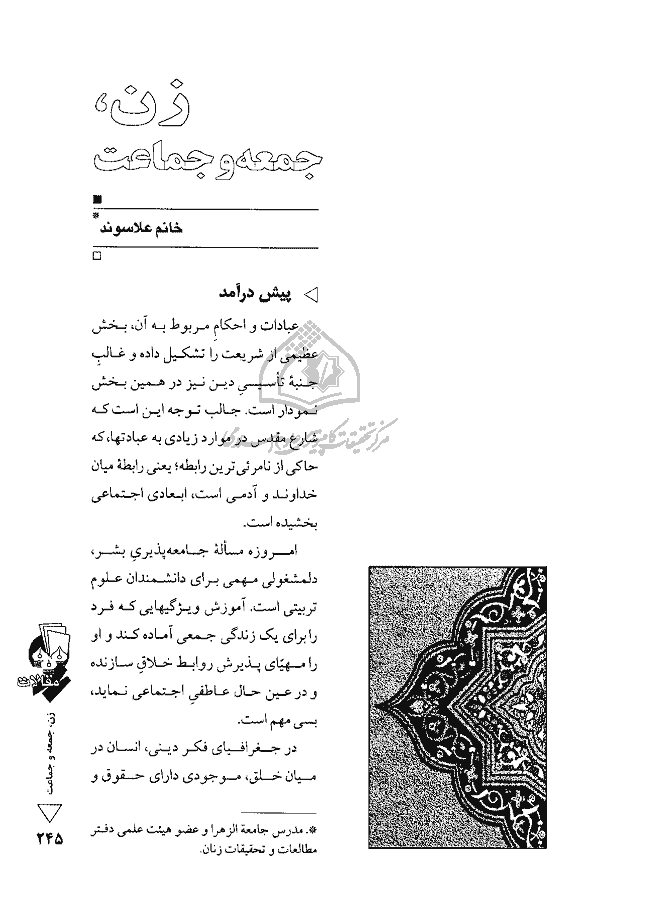 زن،
جمعه و جماعت
خانم علاسوند*
پیش درآمد
عبادات و احکامِ مربوط به آن، بخش
عظیمی از شریعت را تشکیل داده و غالبِ
جنبهٔ تأسیسیِ دین نیز در همین بخش
نمودار است. جالب توجه این است که
شارع مقدس در موارد زیادی به عبادتها، که
حاکی از نامرئی‌ترین رابطه؛ یعنی رابطهٔ میان
خداوند و آدمی است، ابعادی اجتماعی
بخشیده است.
امروزه مسألهٔ جامعه‌پذیریِ بشر،
دلمشغولی مهمی برای دانشمندان علوم
تربیتی است. آموزش ویژگیهایی که فرد
را برای یک زندگی جمعی آماده کند و او
را مهیّای پذیرش روابط خلاقِ سازنده
و در عین حال عاطفیِ اجتماعی نماید،
بسی مهم است.
در جغرافیای فکر دینی، انسان در
میان خلق، موجودی دارای حقوق و
*. مدرس جامعة الزهرا و عضو هیئت علمی دفتر
مطالعات و تحقیقات زنان.
مقالات
زن، جمعه و جماعت
۲۴۵